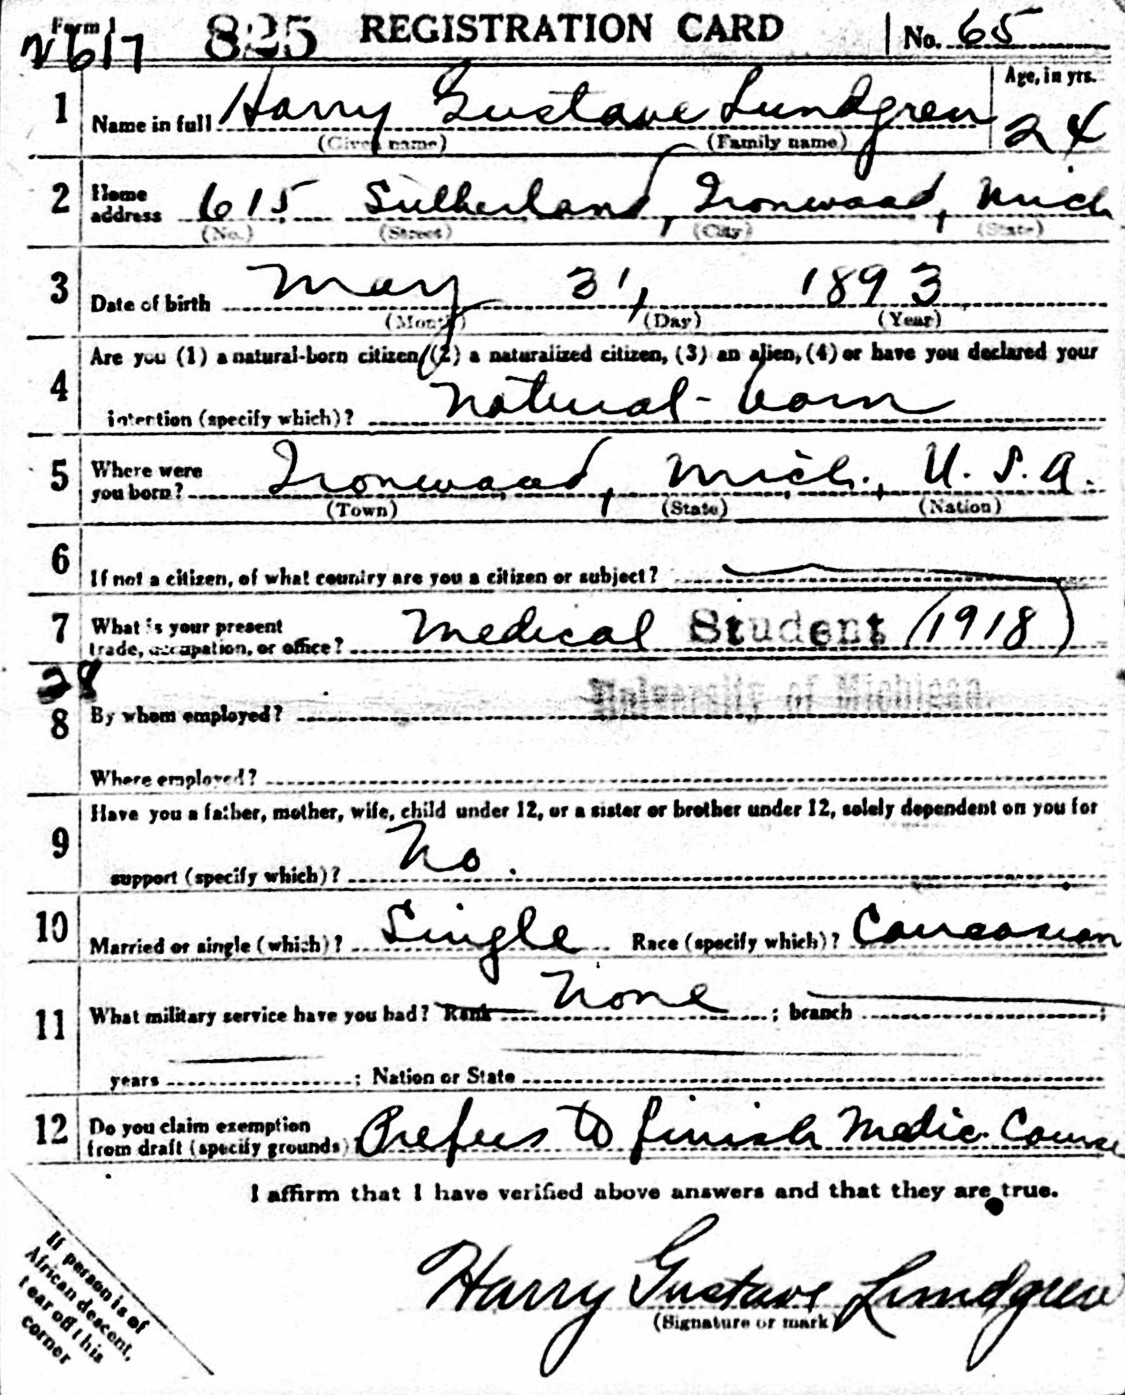 Form 1 825 REGISTRATION CARD No. 65
2617
1 Name in full Harry Gustave Lundgren Age, in yrs. 24
(Given name) (Family name)
2 Home address 615 Sutherland, Ironwood, Mich
(No.) (Street) (City) (State)
3 Date of birth May 31, 1893
(Month) (Day) (Year)
4 Are you (1) a natural-born citizen, (2) a naturalized citizen, (3) an alien, (4) or have you declared your
intention (specify which)? Natural-born
5 Where were you born? Ironwood, Mich., U. S. A.
(Town) (State) (Nation)
6 If not a citizen, of what country are you a citizen or subject?
7 What is your present trade, occupation, or office? Medical Student (1918)
28
University of Michigan.
8 By whom employed?
Where employed?
9 Have you a father, mother, wife, child under 12, or a sister or brother under 12, solely dependent on you for
support (specify which)? No.
10 Married or single (which)? Single Race (specify which)? Caucasian
11 What military service have you had? Rank None ; branch ;
years ; Nation or State
12 Do you claim exemption from draft (specify grounds) Prefers to finish Medic. Course
I affirm that I have verified above answers and that they are true.
Harry Gustave Lundgren
(Signature or mark)
If person is of
African descent,
tear off this
corner